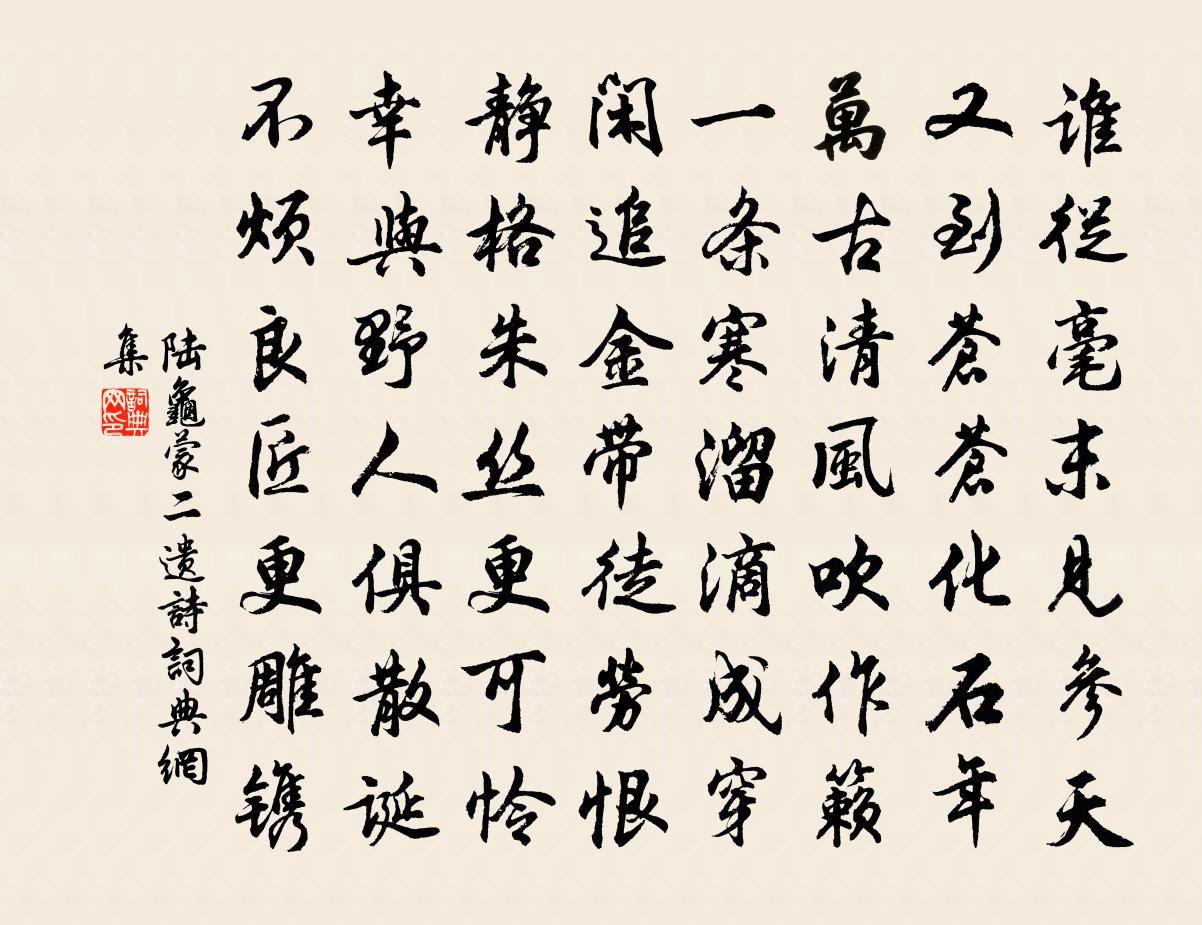 誰從毫末見參天
又到蒼蒼化石年
萬古清風吹作籟
一条寒溜滴成穿
閑追金帶徒勞恨
靜格朱丝更可怜
幸與野人俱散誕
不煩良匠更雕镌
陆龜蒙二遺詩詞典網
集
詞典网印